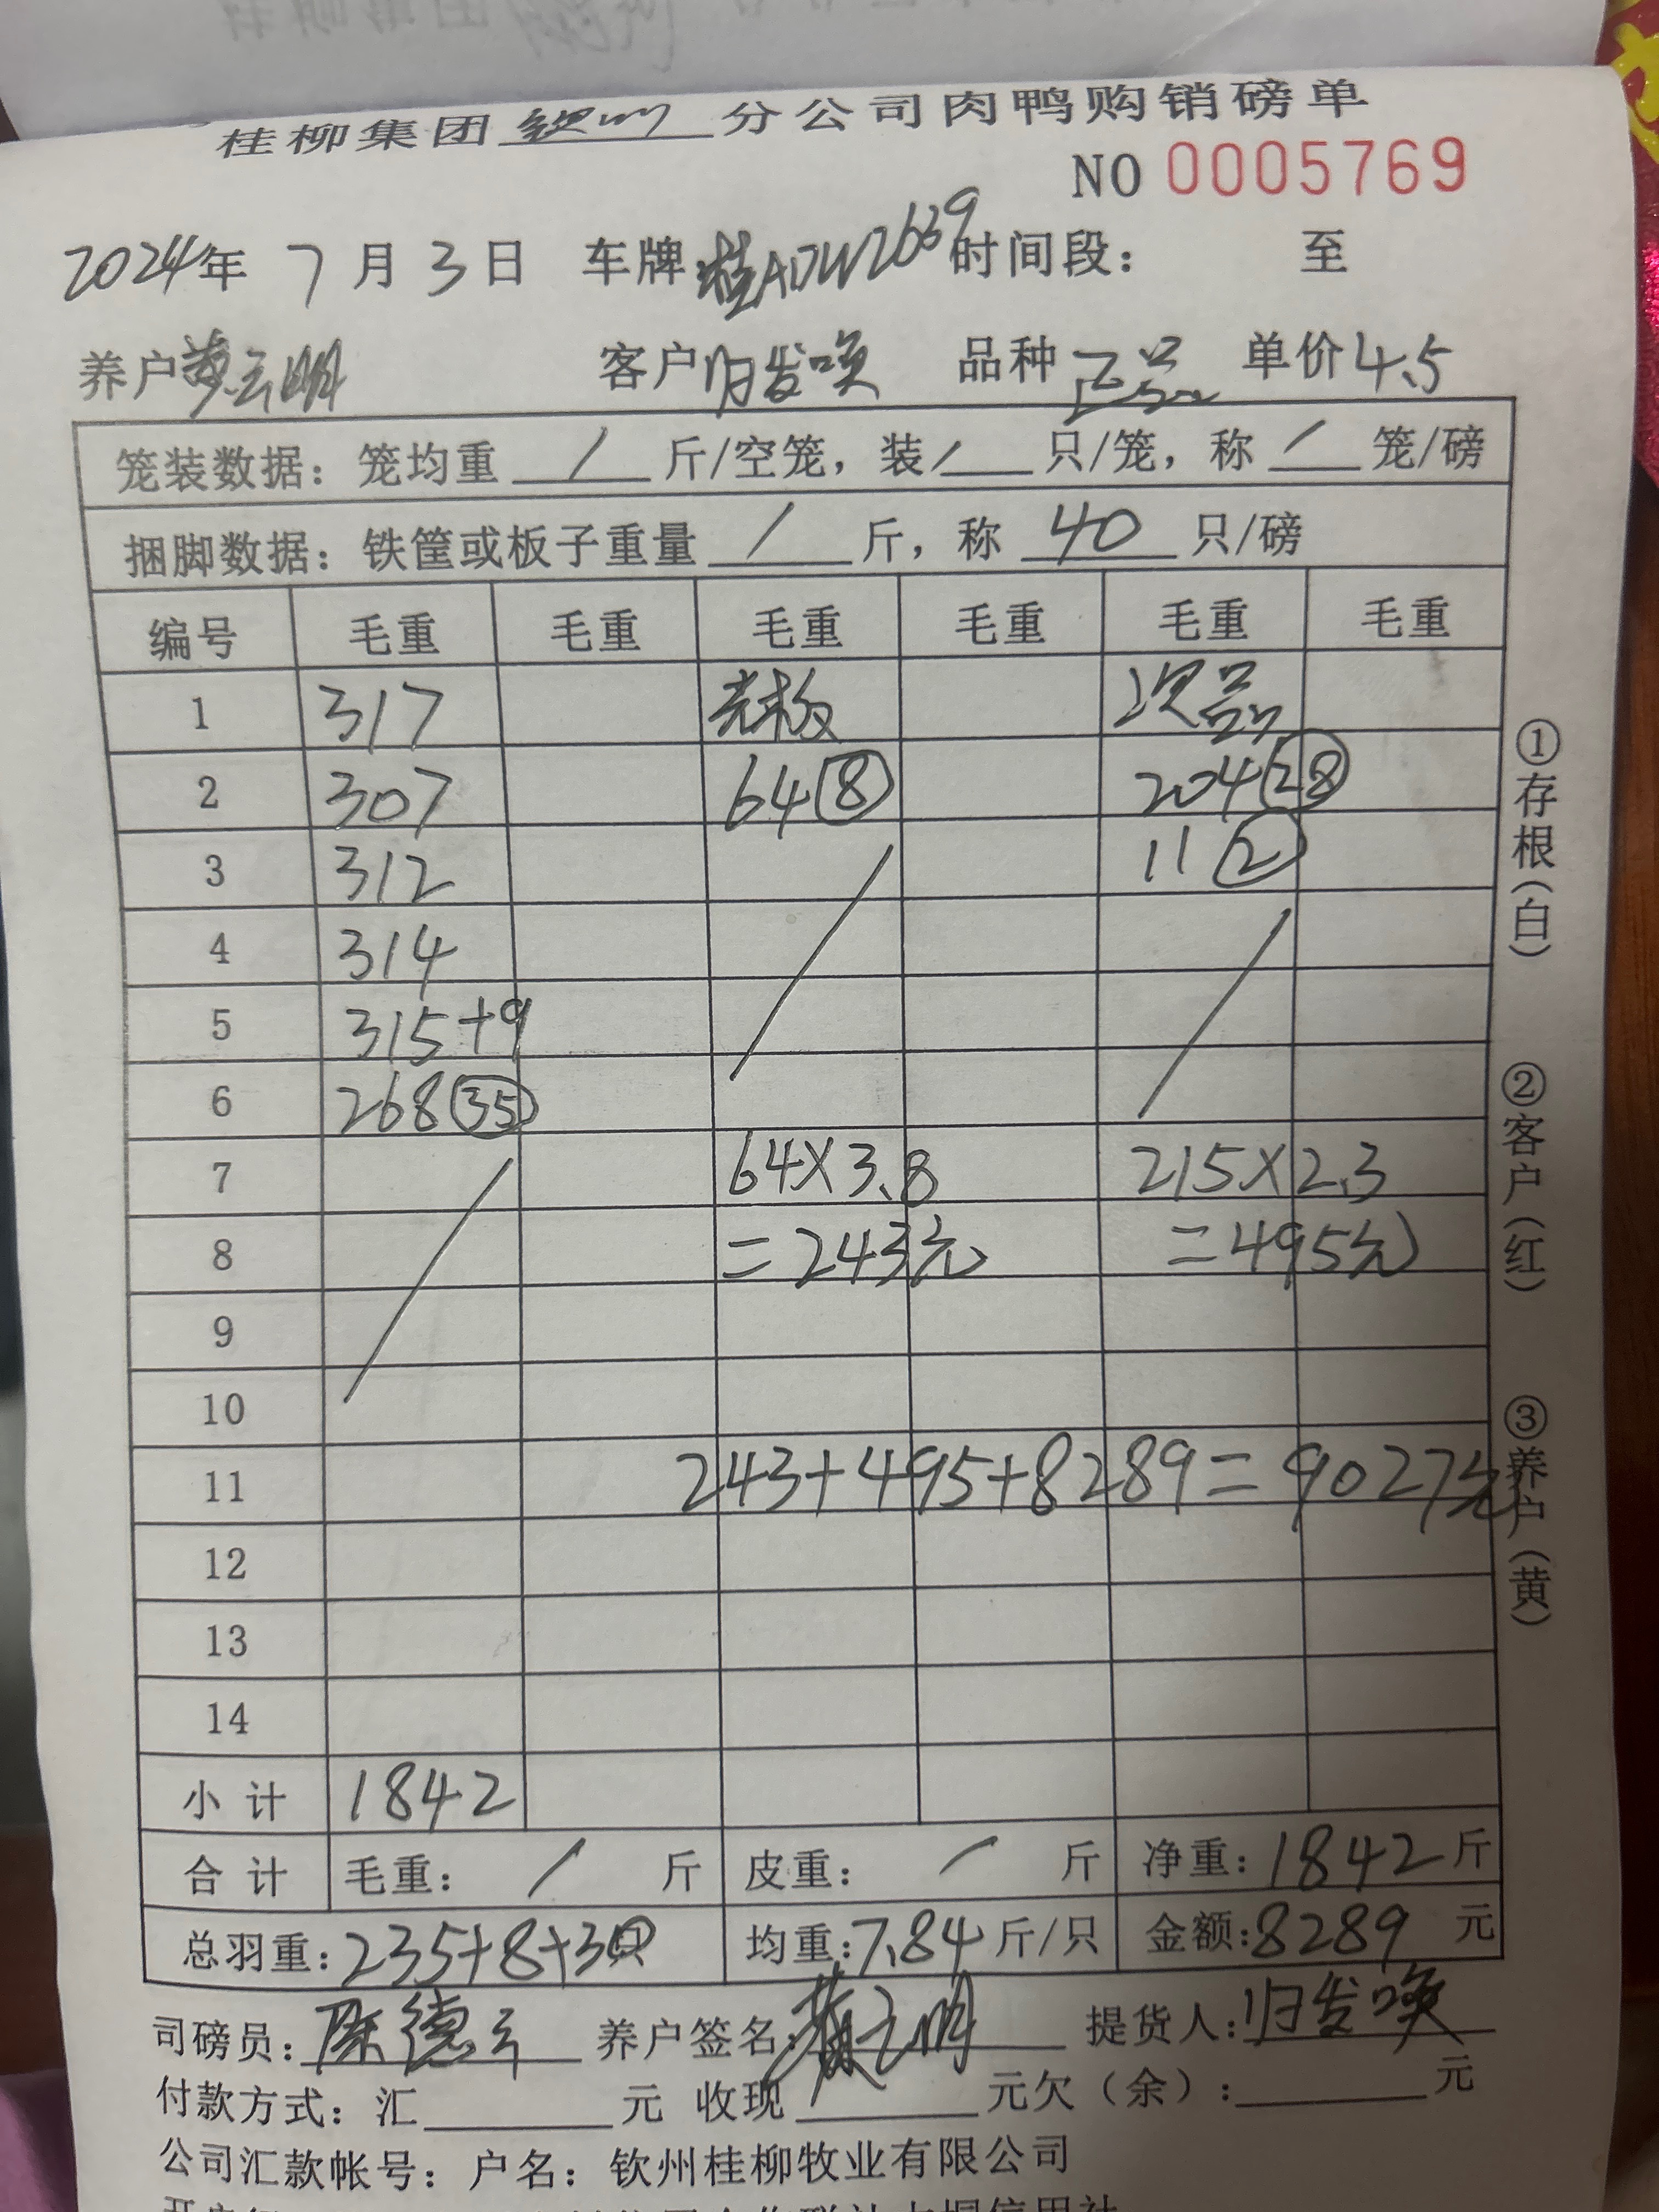 桂柳集团钦州分公司肉鸭购销磅单
NO 0005769
2024年 7月3日 车牌桂A0W2639时间段： 至
养户黄云明 客户归发唤 品种正品 单价4.5
笼装数据：笼均重 / 斤/空笼，装 / 只/笼，称 / 笼/磅
捆脚数据：铁筐或板子重量 / 斤，称 40 只/磅
编号 毛重 毛重 毛重 毛重 毛重 毛重
1 317 老板 次品
2 307 64⑧ 204㉘
3 312 11②
4 314
5 315+9
6 268㉟
7 64×3.8 215×2.3
8 =243元 =495元
9
10
11 243+495+8289=9027元
12
13
14
小计 1842
合计 毛重： / 斤 皮重： / 斤 净重：1842斤
总羽重：235+8+30只 均重：7.84斤/只 金额：8289 元
司磅员：陈德云 养户签名：黄云明 提货人：归发唤
付款方式：汇 元 收现 元欠（余）： 元
公司汇款帐号：户名：钦州桂柳牧业有限公司
①存根（白）
②客户（红）
③养户（黄）